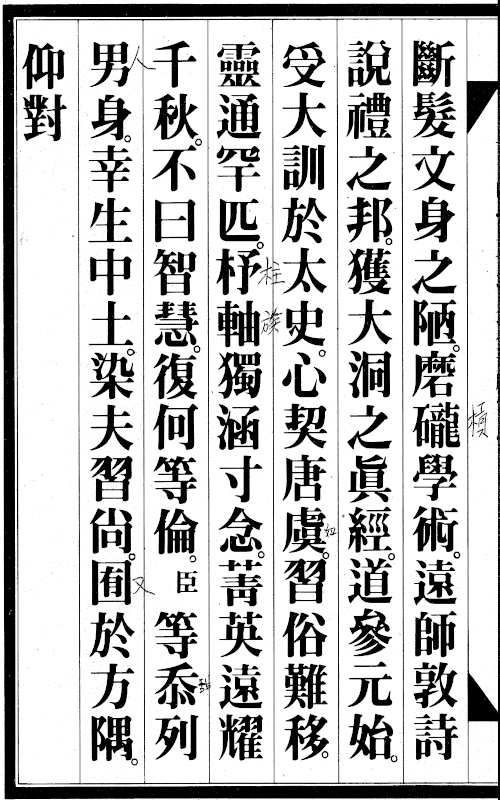 斷髮文身之陋。磨礲學術。遠師敦詩
說禮之邦。獲大洞之眞經。道參元始。
受大訓於太史。心契唐虞。習俗難移。
靈通罕匹。杼軸獨涵寸念。菁英遠耀
千秋。不曰智慧。復何等倫。臣等忝列
男身。幸生中土。染夫習尙。囿於方隅。
仰對